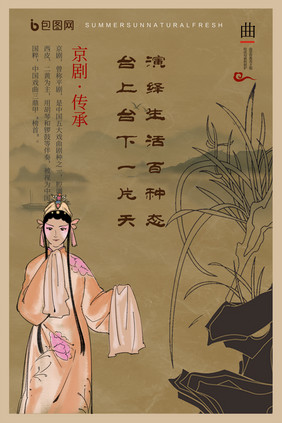 包图网
SUMMERSUNNATURALFRESH
曲
演绎生活百种态
台上台下一片天
京剧·传承
京剧，曾称平剧，是中国五大戏曲剧种之一，
西皮、二黄为主，用胡琴和锣鼓等伴奏，被视为中国
国粹，中国戏曲三鼎甲“榜首”。